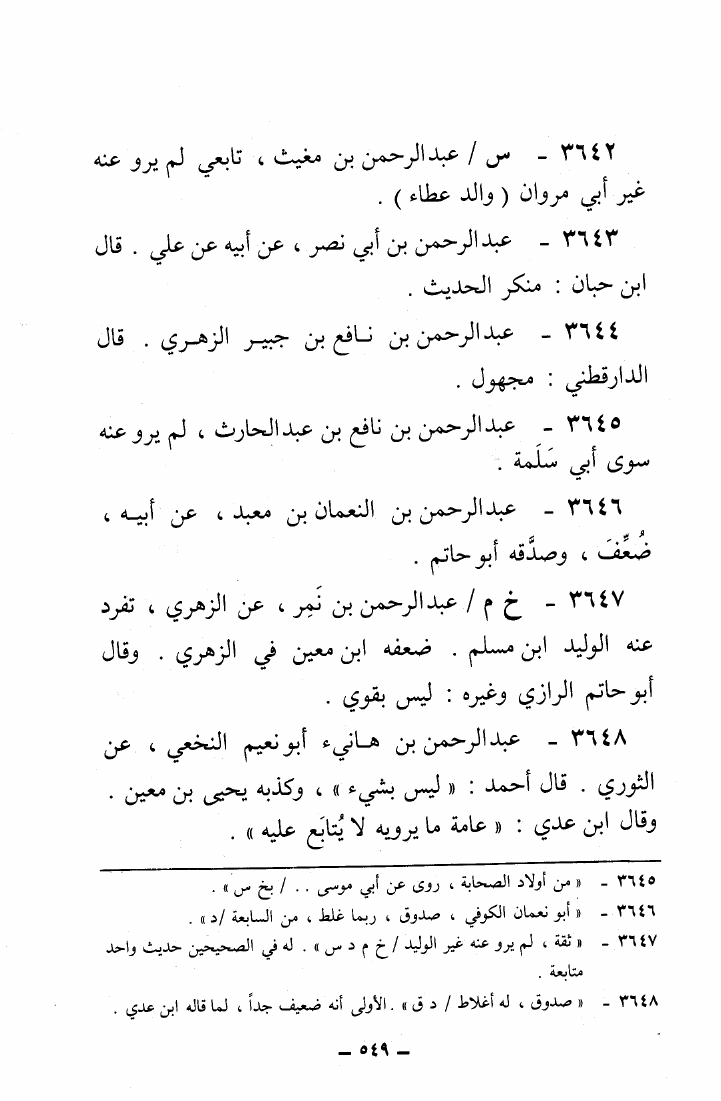 ٣٦٤٢ ـ س / عبدالرحمن بن مغيث ، تابعي لم يرو عنه
غير أبي مروان ( والد عطاء ) .
٣٦٤٣ ـ عبدالرحمن بن أبي نصر ، عن أبيه عن علي . قال
ابن حبان : منكر الحديث .
٣٦٤٤ ـ عبدالرحمن بن نـافع بن جبيـر الزهـري . قال
الدارقطني : مجهول .
٣٦٤٥ ـ عبدالرحمن بن نافع بن عبدالحارث ، لم يرو عنه
سوى أبي سَلَمة .
٣٦٤٦ ـ عبدالرحمن بن النعمان بن معبد ، عن أبيـه ،
ضُعِّفَ ، وصدَّقه أبو حاتم .
٣٦٤٧ ـ خ م / عبدالرحمن بن نَمِر ، عن الزهري ، تفرد
عنه الوليد ابن مسلم . ضعفه ابن معين في الزهري . وقال
أبو حاتم الرازي وغيره : ليس بقوي .
٣٦٤٨ ـ عبدالرحمن بن هـانيء أبو نعيم النخعي ، عن
الثوري . قال أحمد : « ليس بشيء » ، وكذبه يحيى بن معين .
وقال ابن عدي : « عامة ما يرويه لا يُتابَع عليه » .
٣٦٤٥ ـ « من أولاد الصحابة ، روى عن أبي موسى . . / بخ س » .
٣٦٤٦ ـ « أبو نعمان الكوفي ، صدوق ، ربما غلط ، من السابعة /د » .
٣٦٤٧ ـ « ثقة ، لم يرو عنه غير الوليد / خ م د س » . له في الصحيحين حديث واحد
متابعة .
٣٦٤٨ ـ « صدوق ، له أغلاط / د ق » . الأولى أنه ضعيف جداً ، لما قاله ابن عدي .
ـ ٥٤٩ ـ